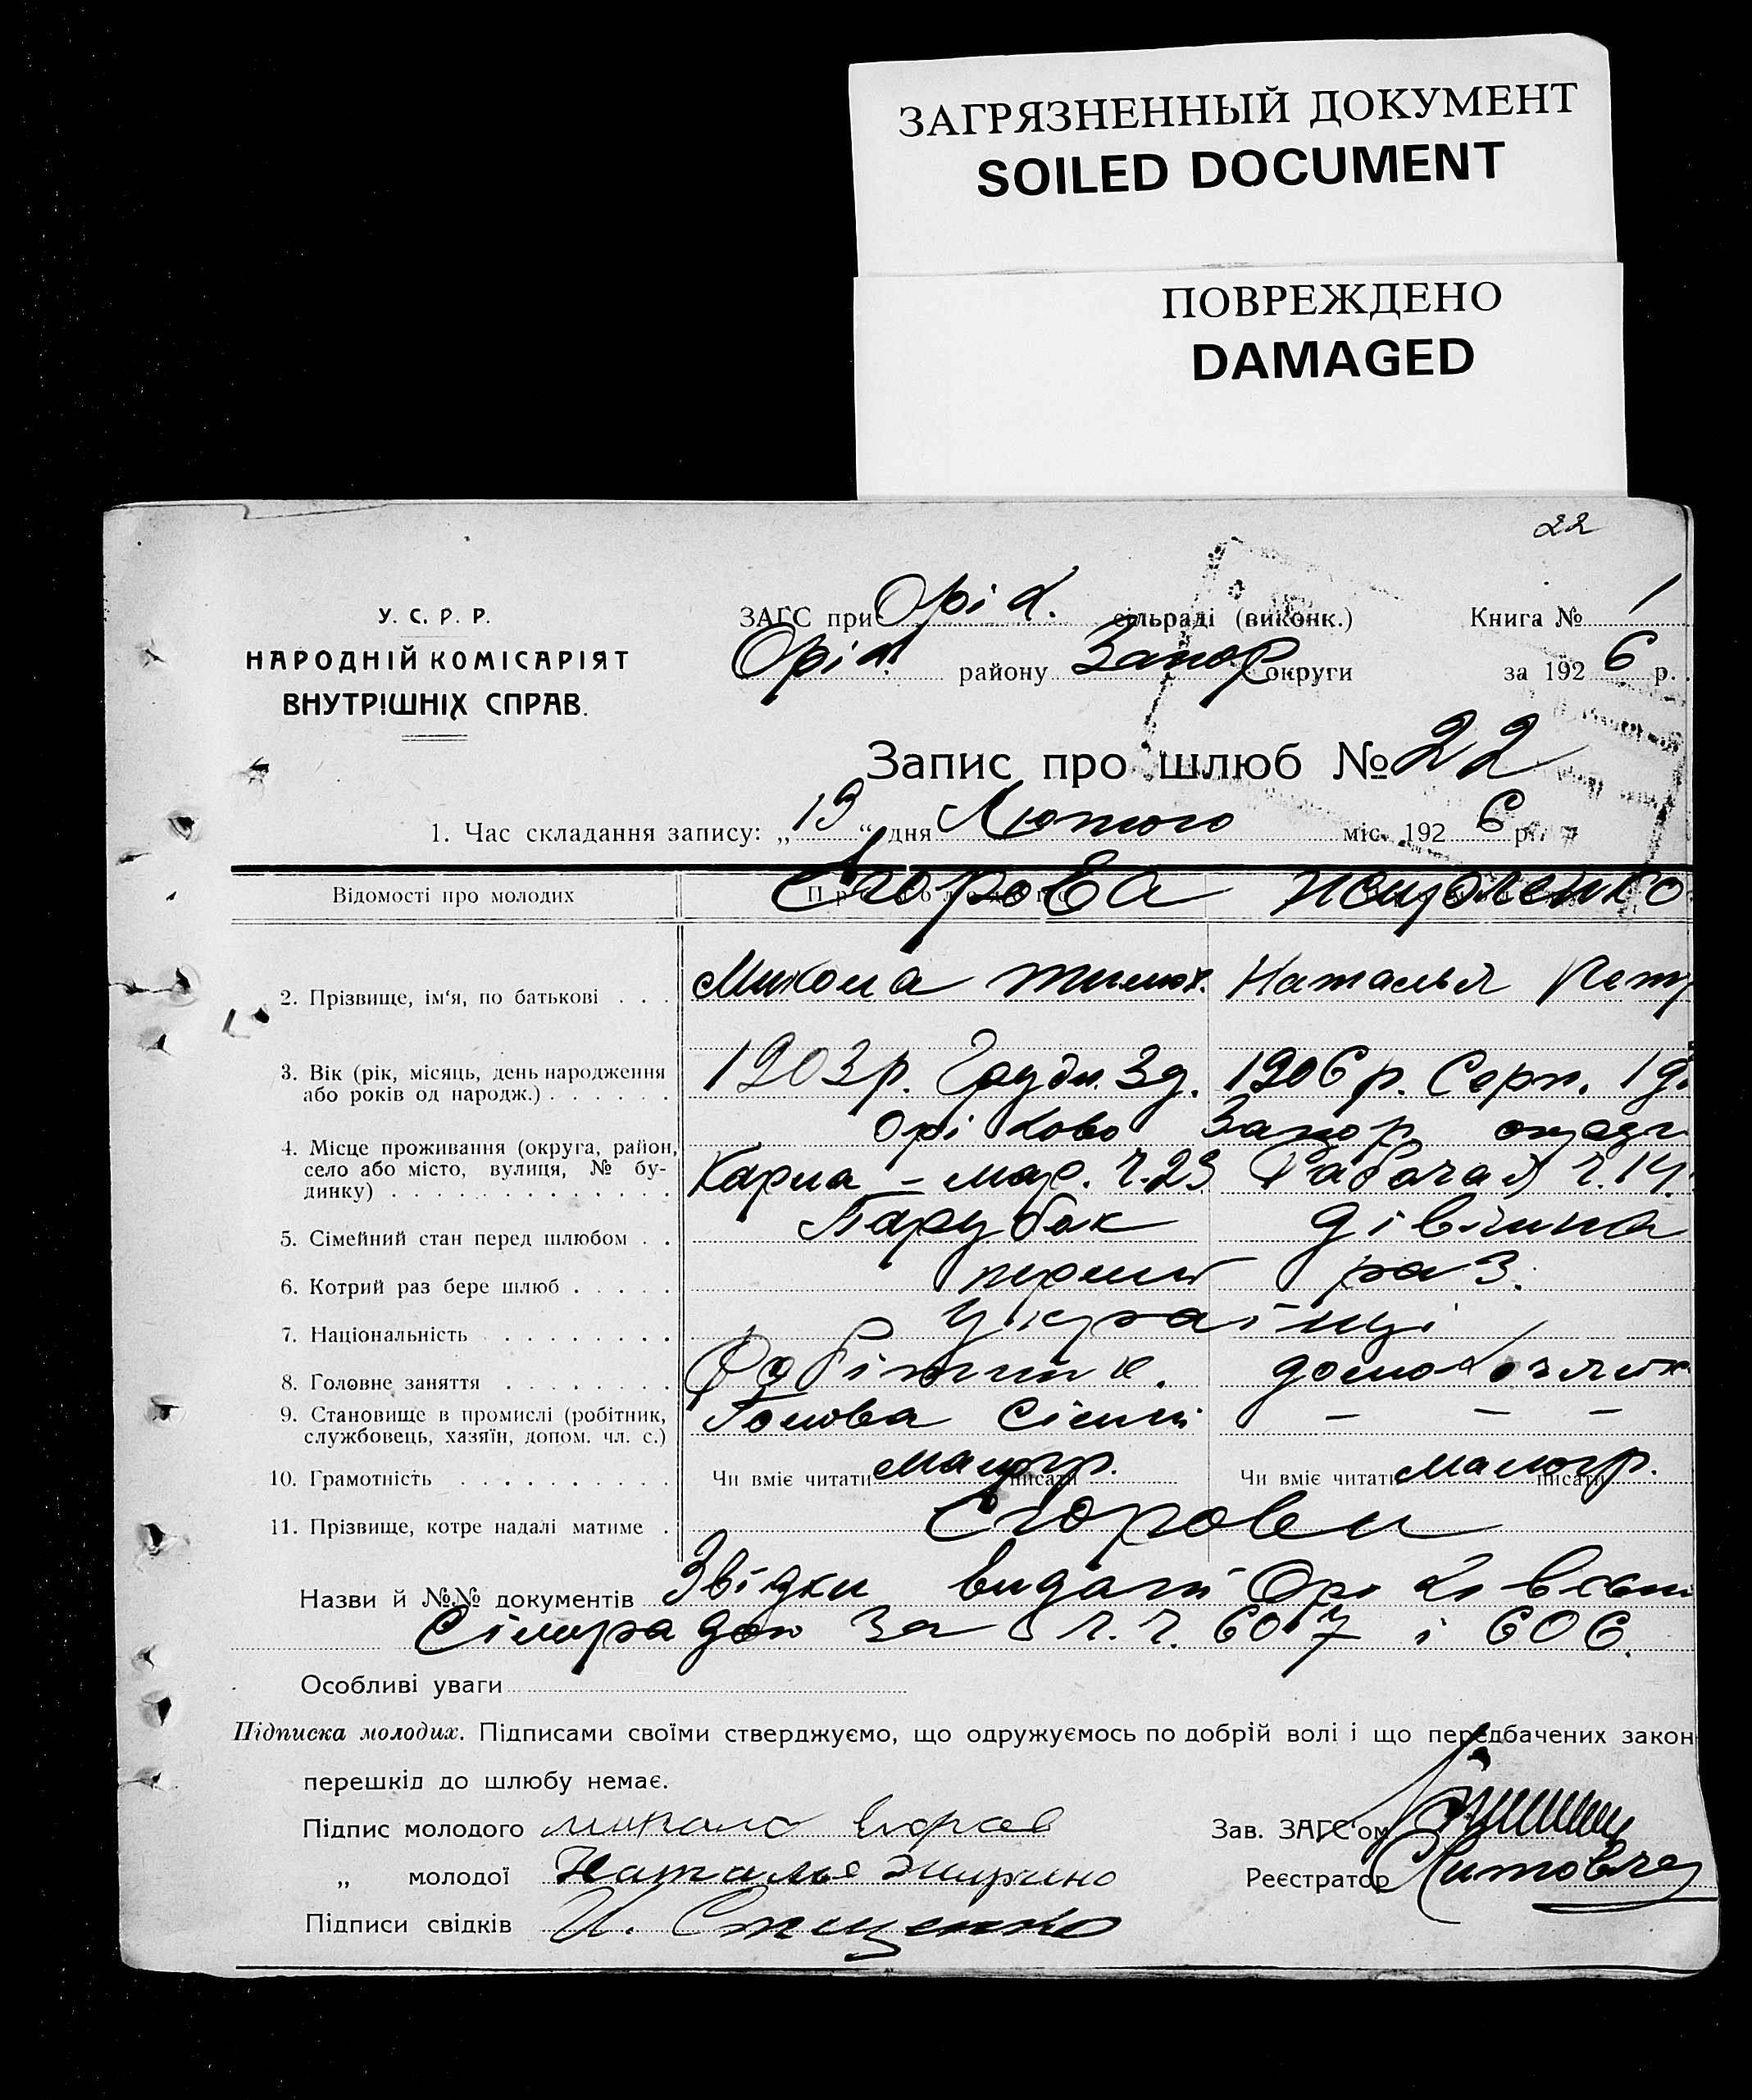 ЗАГРЯЗНЕННЫЙ ДОКУМЕНТ
SOILED DOCUMENT
ПОВРЕЖДЕНО
DAMAGED
22
У. С. Р. Р.
НАРОДНІЙ КОМІСАРІЯТ
ВНУТРІШНІХ СПРАВ.
ЗАГС при Оріх. сільраді (виконк.) Книга № 1
Оріх. району Запор округи за 1926 р.
Запис про шлюб № 22
1. Час складання запису: „19“ дня Лютого міс. 1926 р.
Відомості про молодих Єгорова
2. Прізвище, ім'я, по батькові . . . Микола Тимох. Наталья Петр
3. Вік (рік, місяць, день народження 1903 р. Грудн. 3 д. 1906 р. Серп. 1 д.
або років од народж.) . . . . . .
4. Місце проживання (округа, район, Оріхово Запор округи
село або місто, вулиця, № бу-
динку) . . . . . . . . . . . . . Карла - мар. ч. 23 Рабочая ч. 14.
5. Сімейний стан перед шлюбом . . Парубок дівчина
6. Котрий раз бере шлюб . . . . . перший раз.
7. Національність . . . . . . . . українці
8. Головне заняття . . . . . . . . Робітник. домохозяйк
9. Становище в промислі (робітник, Голова сімьї — — —
службовець, хазяїн, допом. чл. с.)
10. Грамотність . . . . . . . . . Чи вміє читати писати малогр. Чи вміє читати писати малогр.
11. Прізвище, котре надалі матиме . Єгорови
Назви й №№ документів Звідки видані
Сільрадою за ч. ч. 607 і 606.
Особливі уваги
Підписка молодих. Підписами своїми стверджуємо, що одружуємось по добрій волі і що передбачених закон
перешкід до шлюбу немає.
Підпис молодого Зав. ЗАГС'ом
„ молодої Наталья Реєстратор
Підписи свідків И. Стиценко